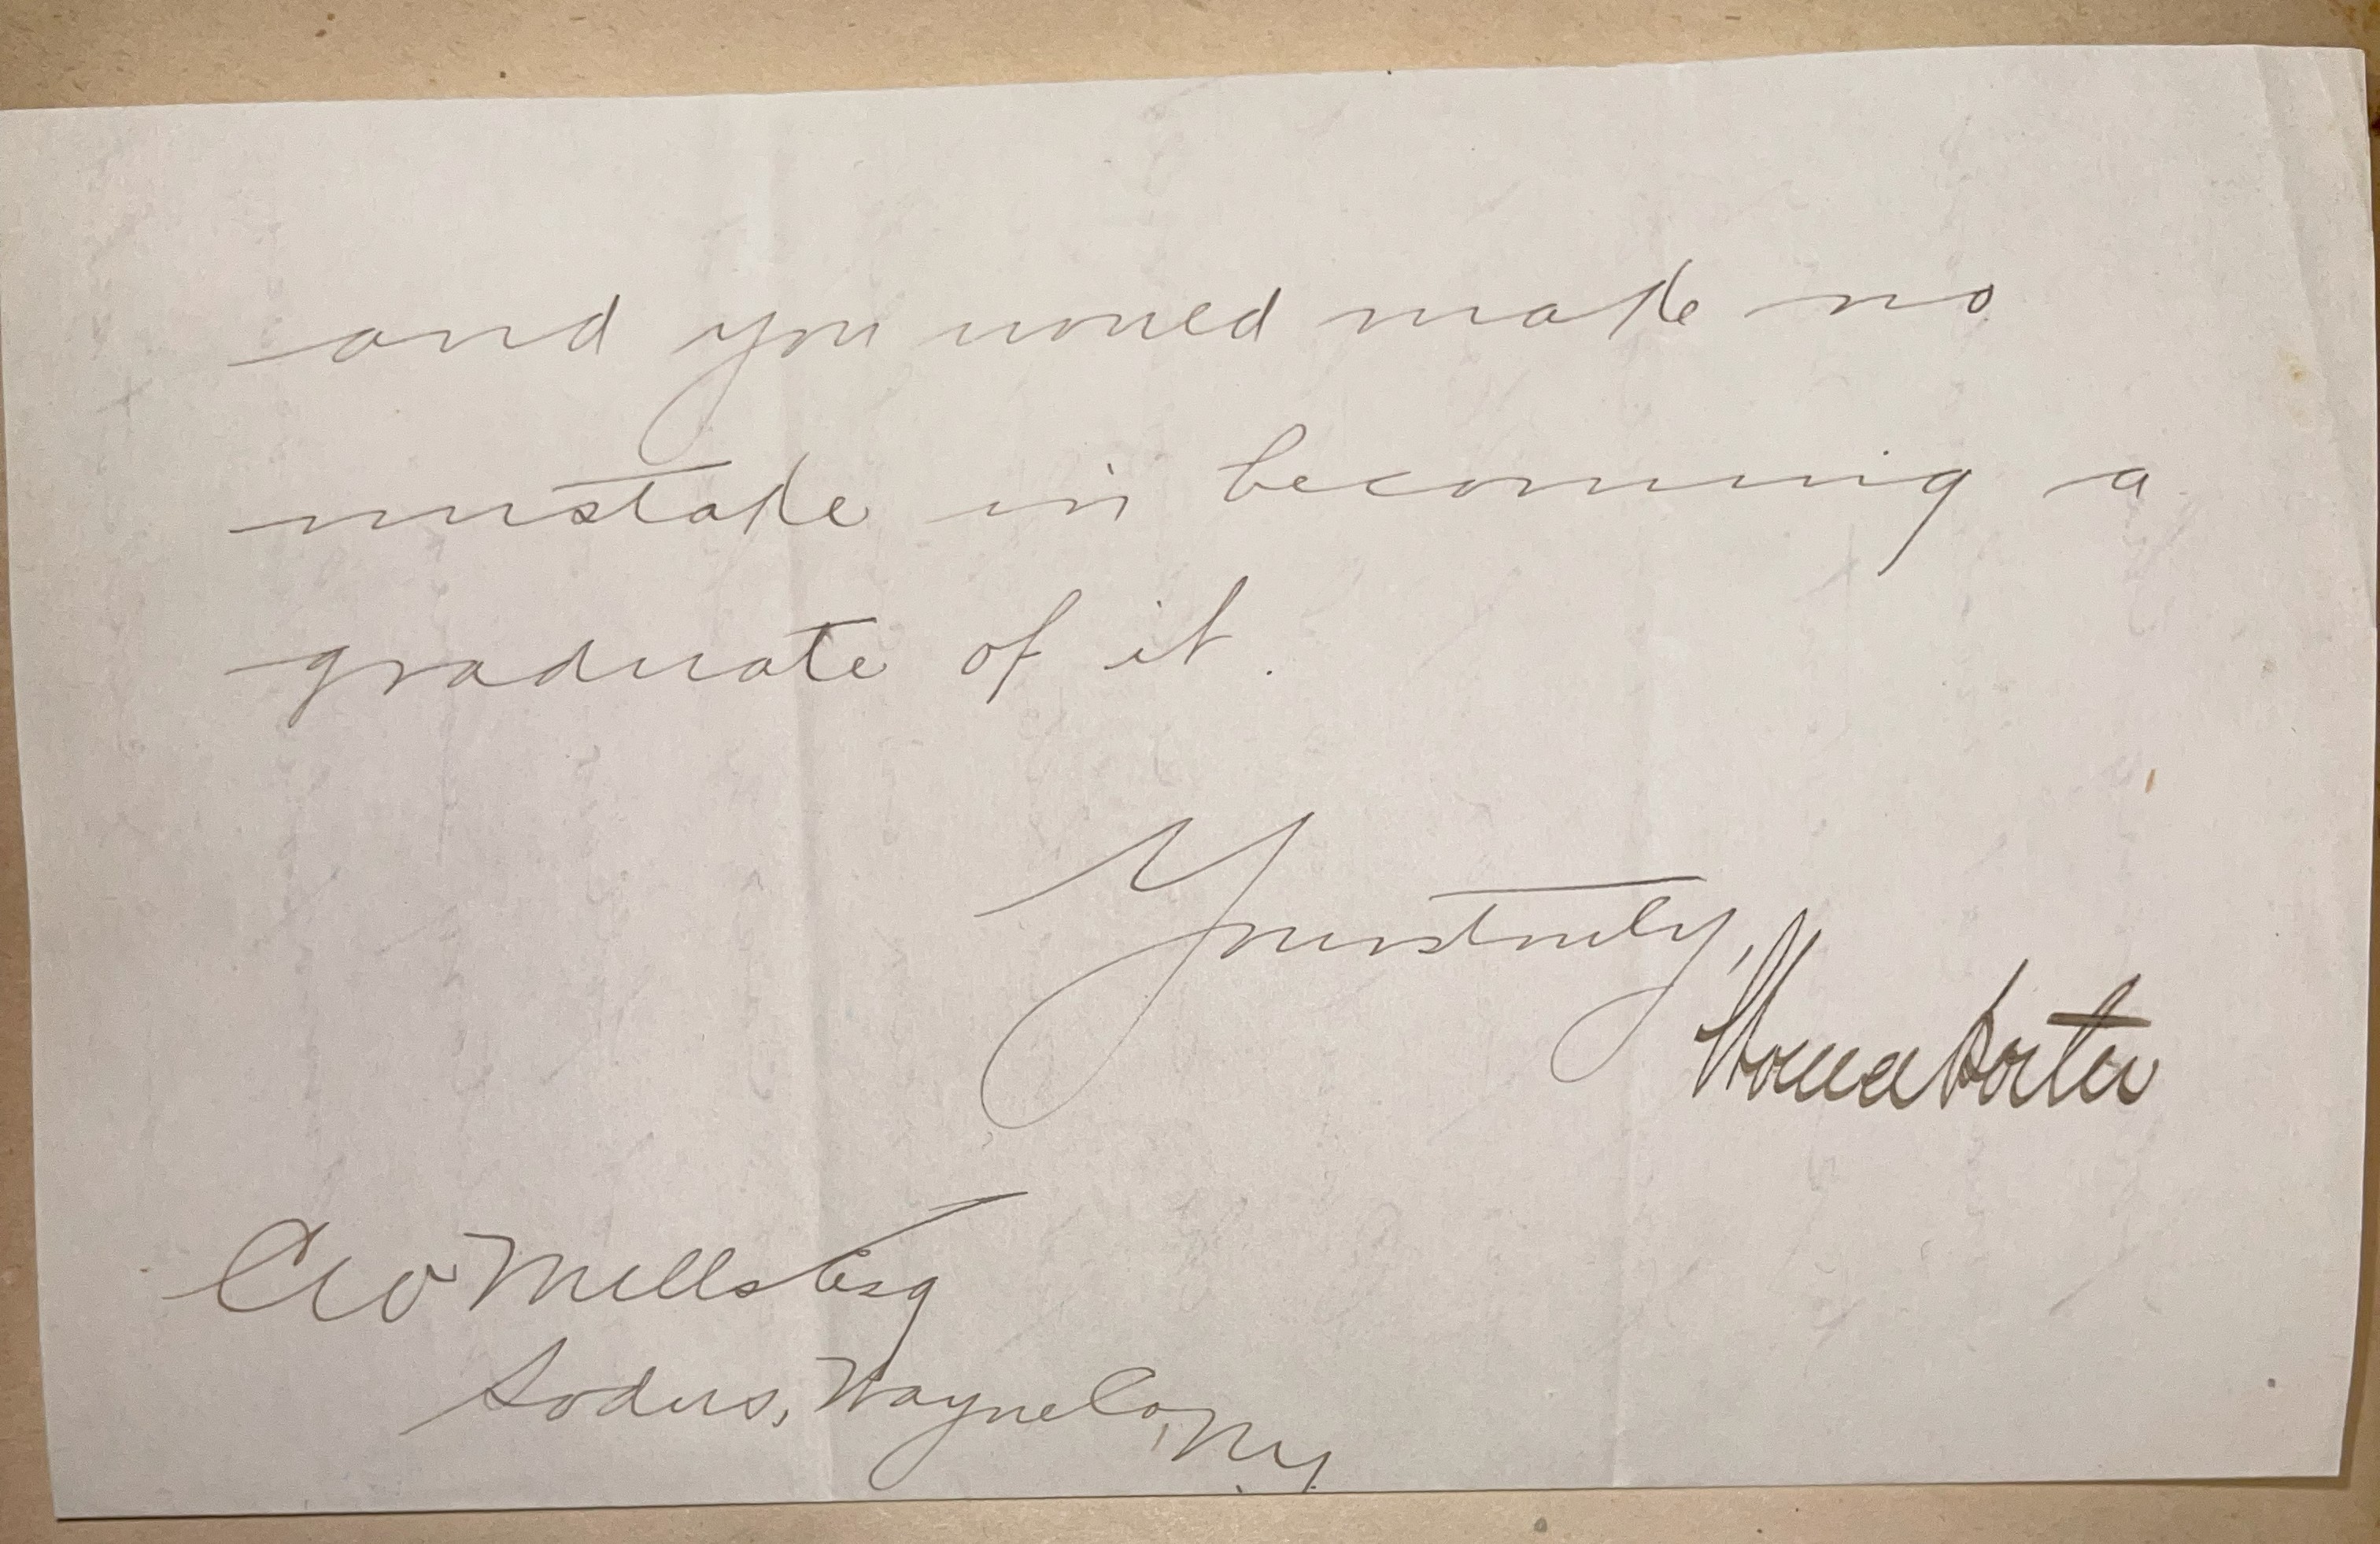 and you would make no
mistake in becoming a
graduate of it.
Yours truly,
Mills Esq
Sodus, Wayne Co, NY